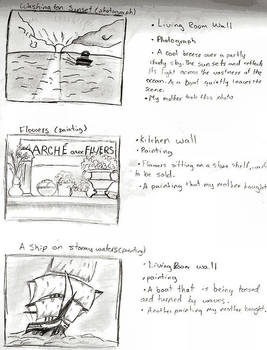 Washington Sunset (photograph)
• Living Room Wall
• Photograph
• A cool breeze over a partly
cloudy sky. The sun sets and reflects
its light across the vastness of the
ocean. As a boat quietly leaves the
scene.
• My mother took this photo
Flowers (painting)
MARCHÉ aux FLEURS
• Kitchen wall
• Painting
• Flowers sitting on a store shelf,
to be sold.
• A painting that my mother bought
A Ship on stormy waters (painting)
• Living Room wall
• painting
• A boat that is being tossed
and turned by waves.
• Another painting my mother bought.